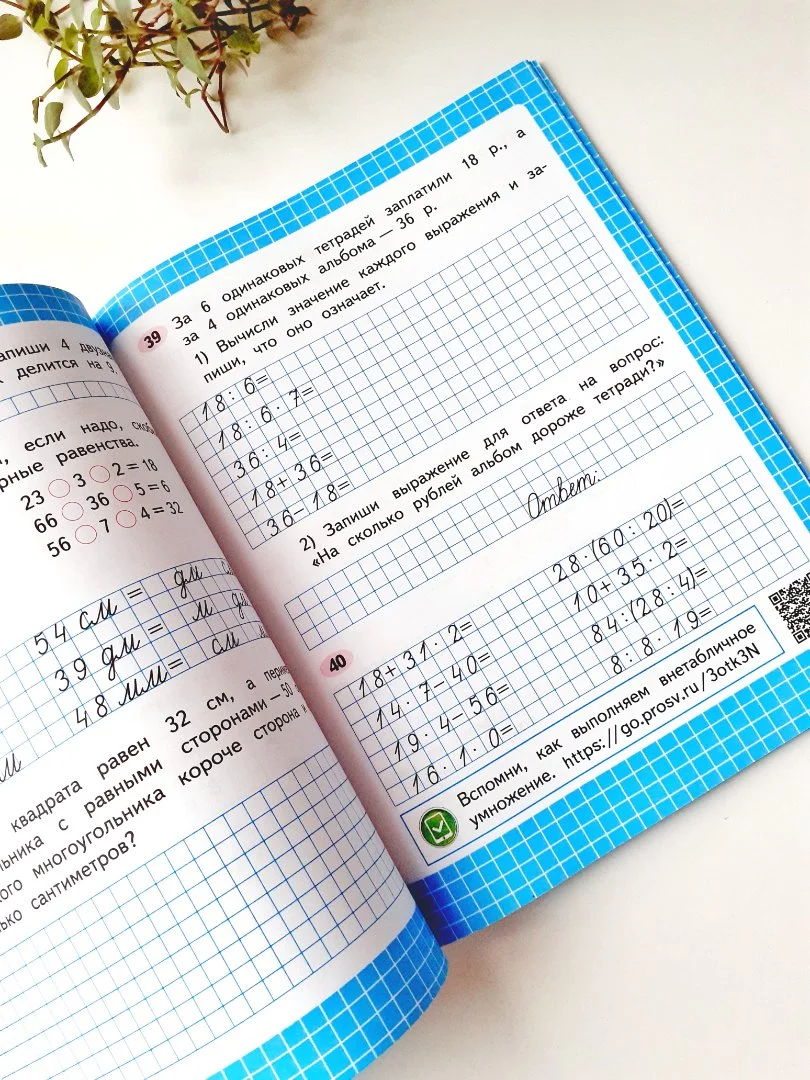 апиши 4 двузн
делится на 9.
если надо, скоб
рные равенства.
23 3 2 = 18
66 36 5 = 6
56 7 4 = 32
54 см = дм
39 дм = м
48 мм = см
квадрата равен 32 см, а
ьника с равными сторонами — 50
ого многоугольника короче сторона
ько сантиметров?
39 За 6 одинаковых тетрадей заплатили 18 р., а
за 4 одинаковых альбома — 36 р.
1) Вычисли значение каждого выражения и за-
пиши, что оно означает.
18 : 6=
18 : 6 · 7=
36 : 4=
18 + 36=
36 − 18=
2) Запиши выражение для ответа на вопрос:
«На сколько рублей альбом дороже тетради?»
Ответ:
40
18 + 31 · 2=
14 · 7 − 40=
19 · 4 − 56=
16 · 1 · 0=
28 · (60 : 20)=
10 + 35 · 2=
84 : (28 : 4)=
8 : 8 · 19=
Вспомни, как выполняем внетабличное
умножение. https://go.prosv.ru/3otk3N